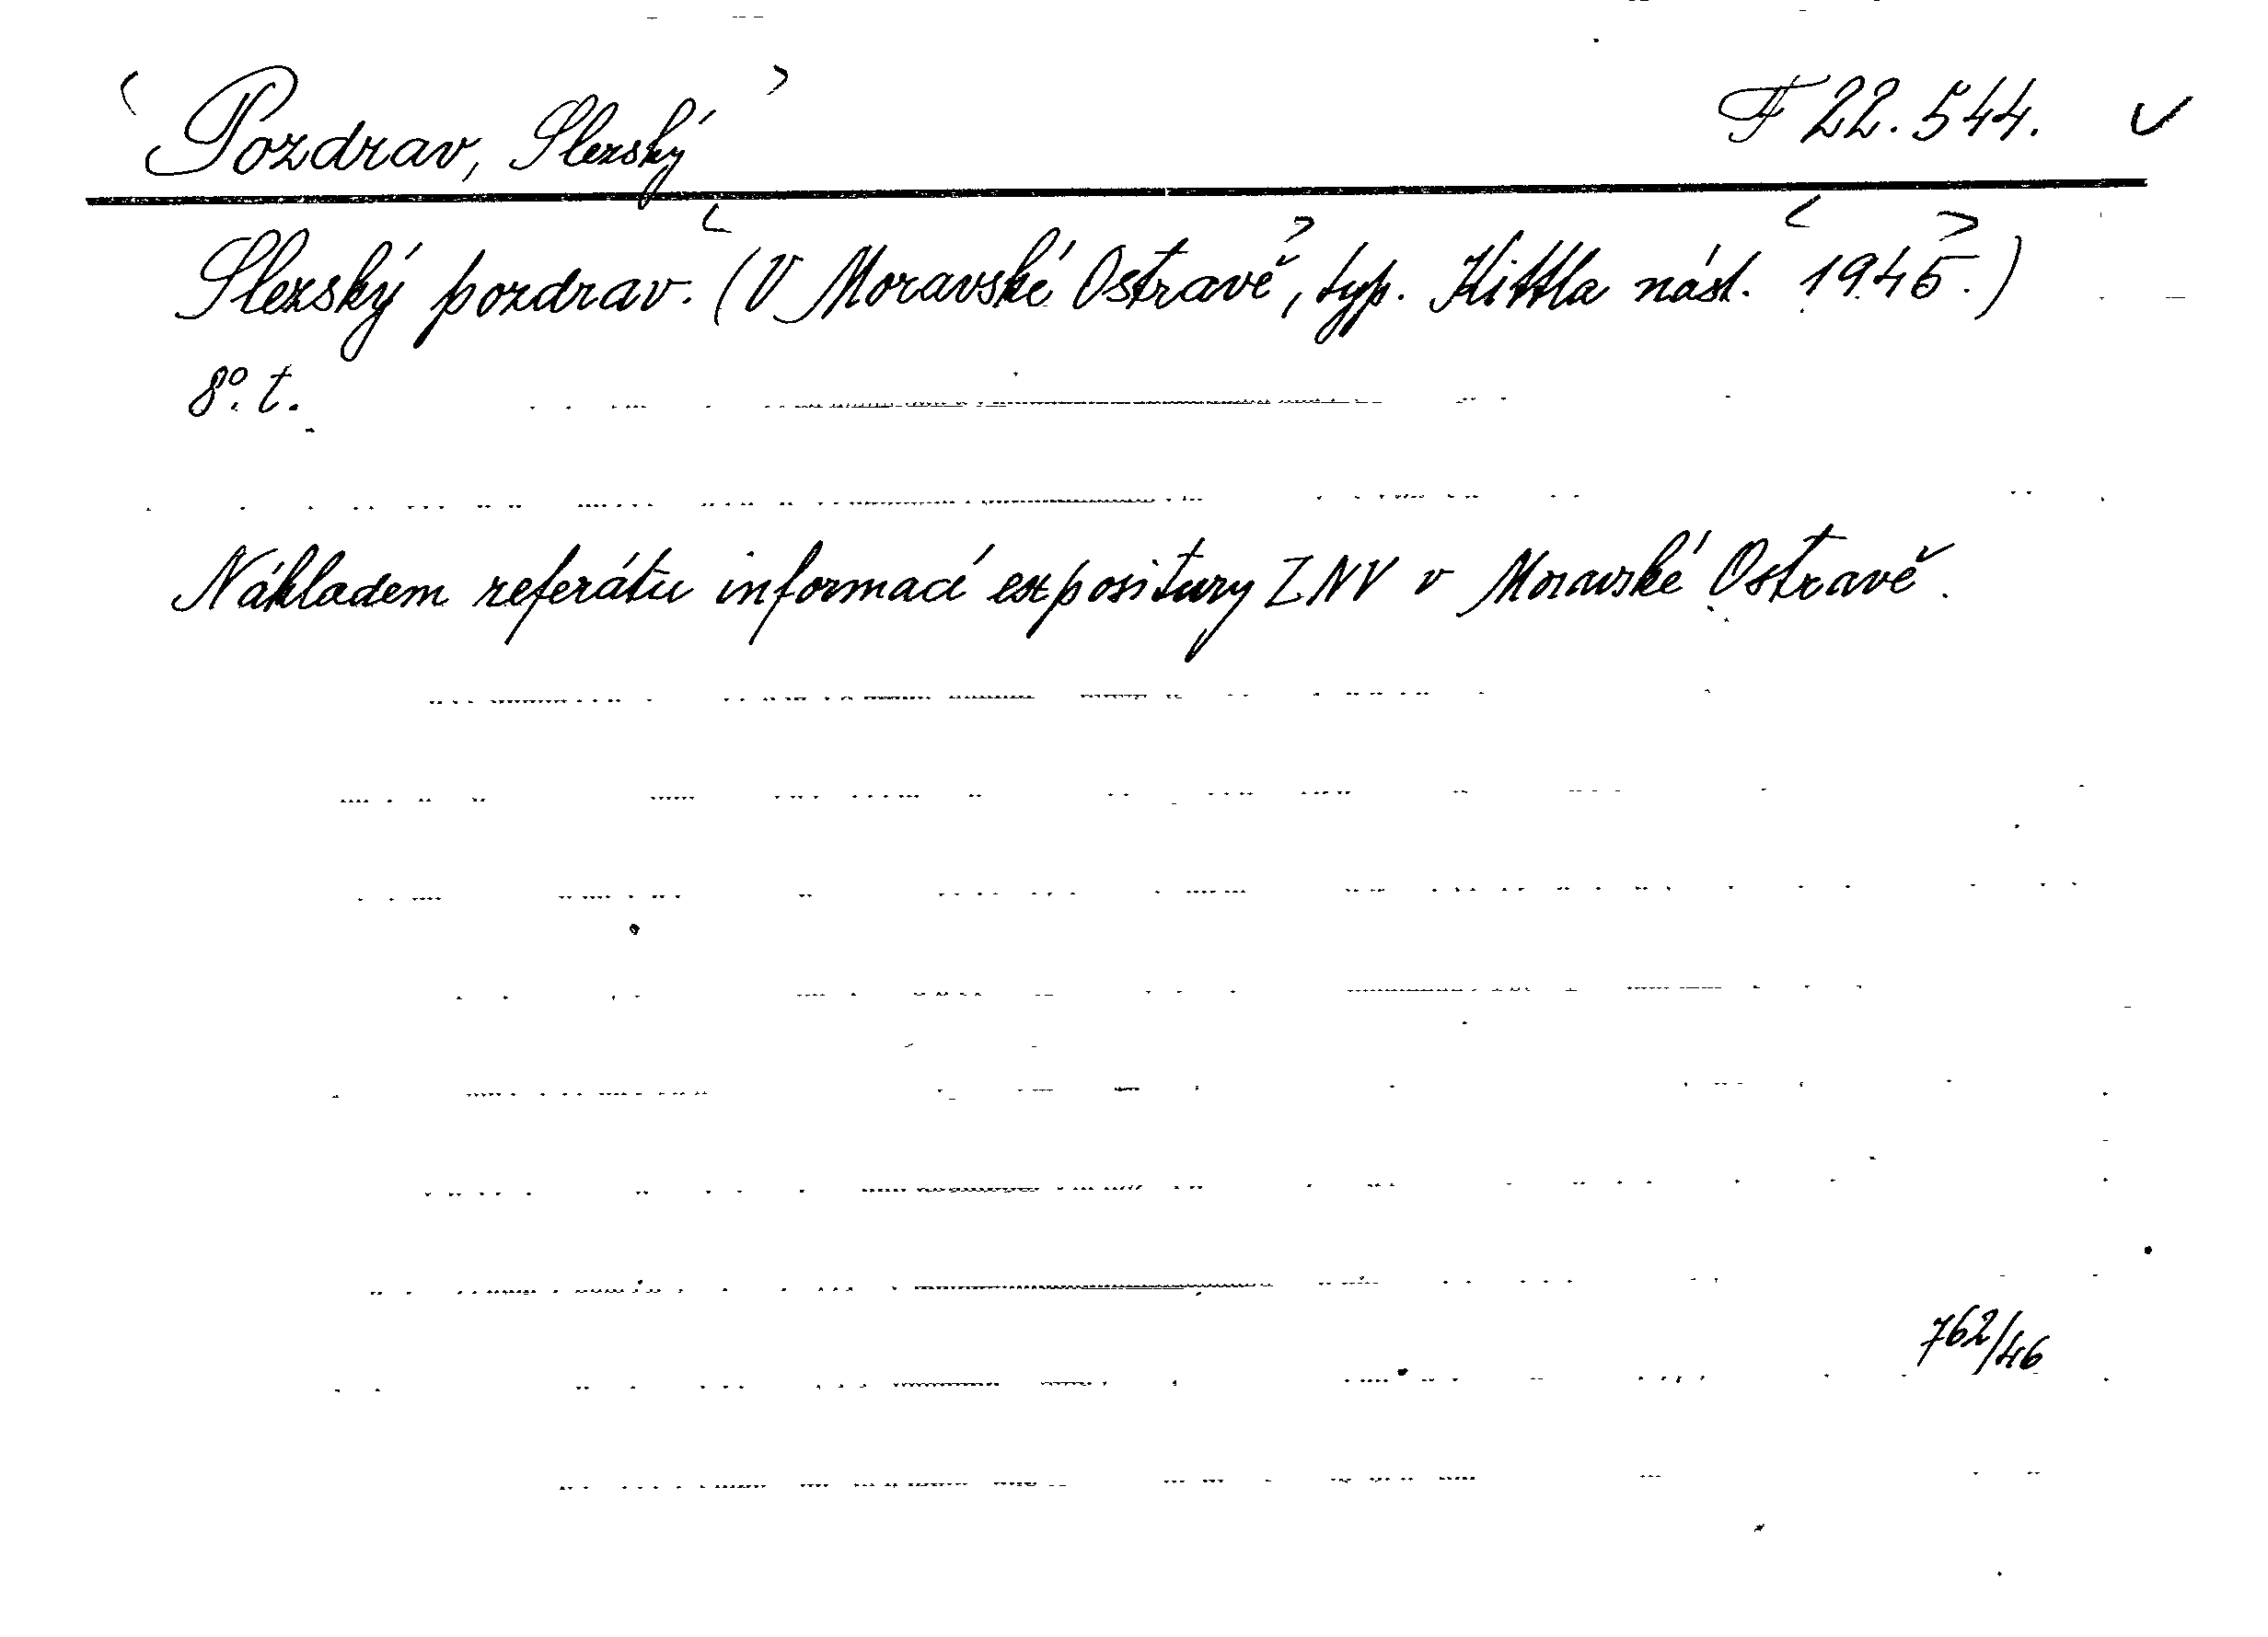 Pozdrav, Slezský F 22.544.
Slezský pozdrav. (V Moravské Ostravě, typ. Kittla násl. 1945.)
8º. t.
Nákladem referátu informací expositury ZNV v Moravské Ostravě.
762/46